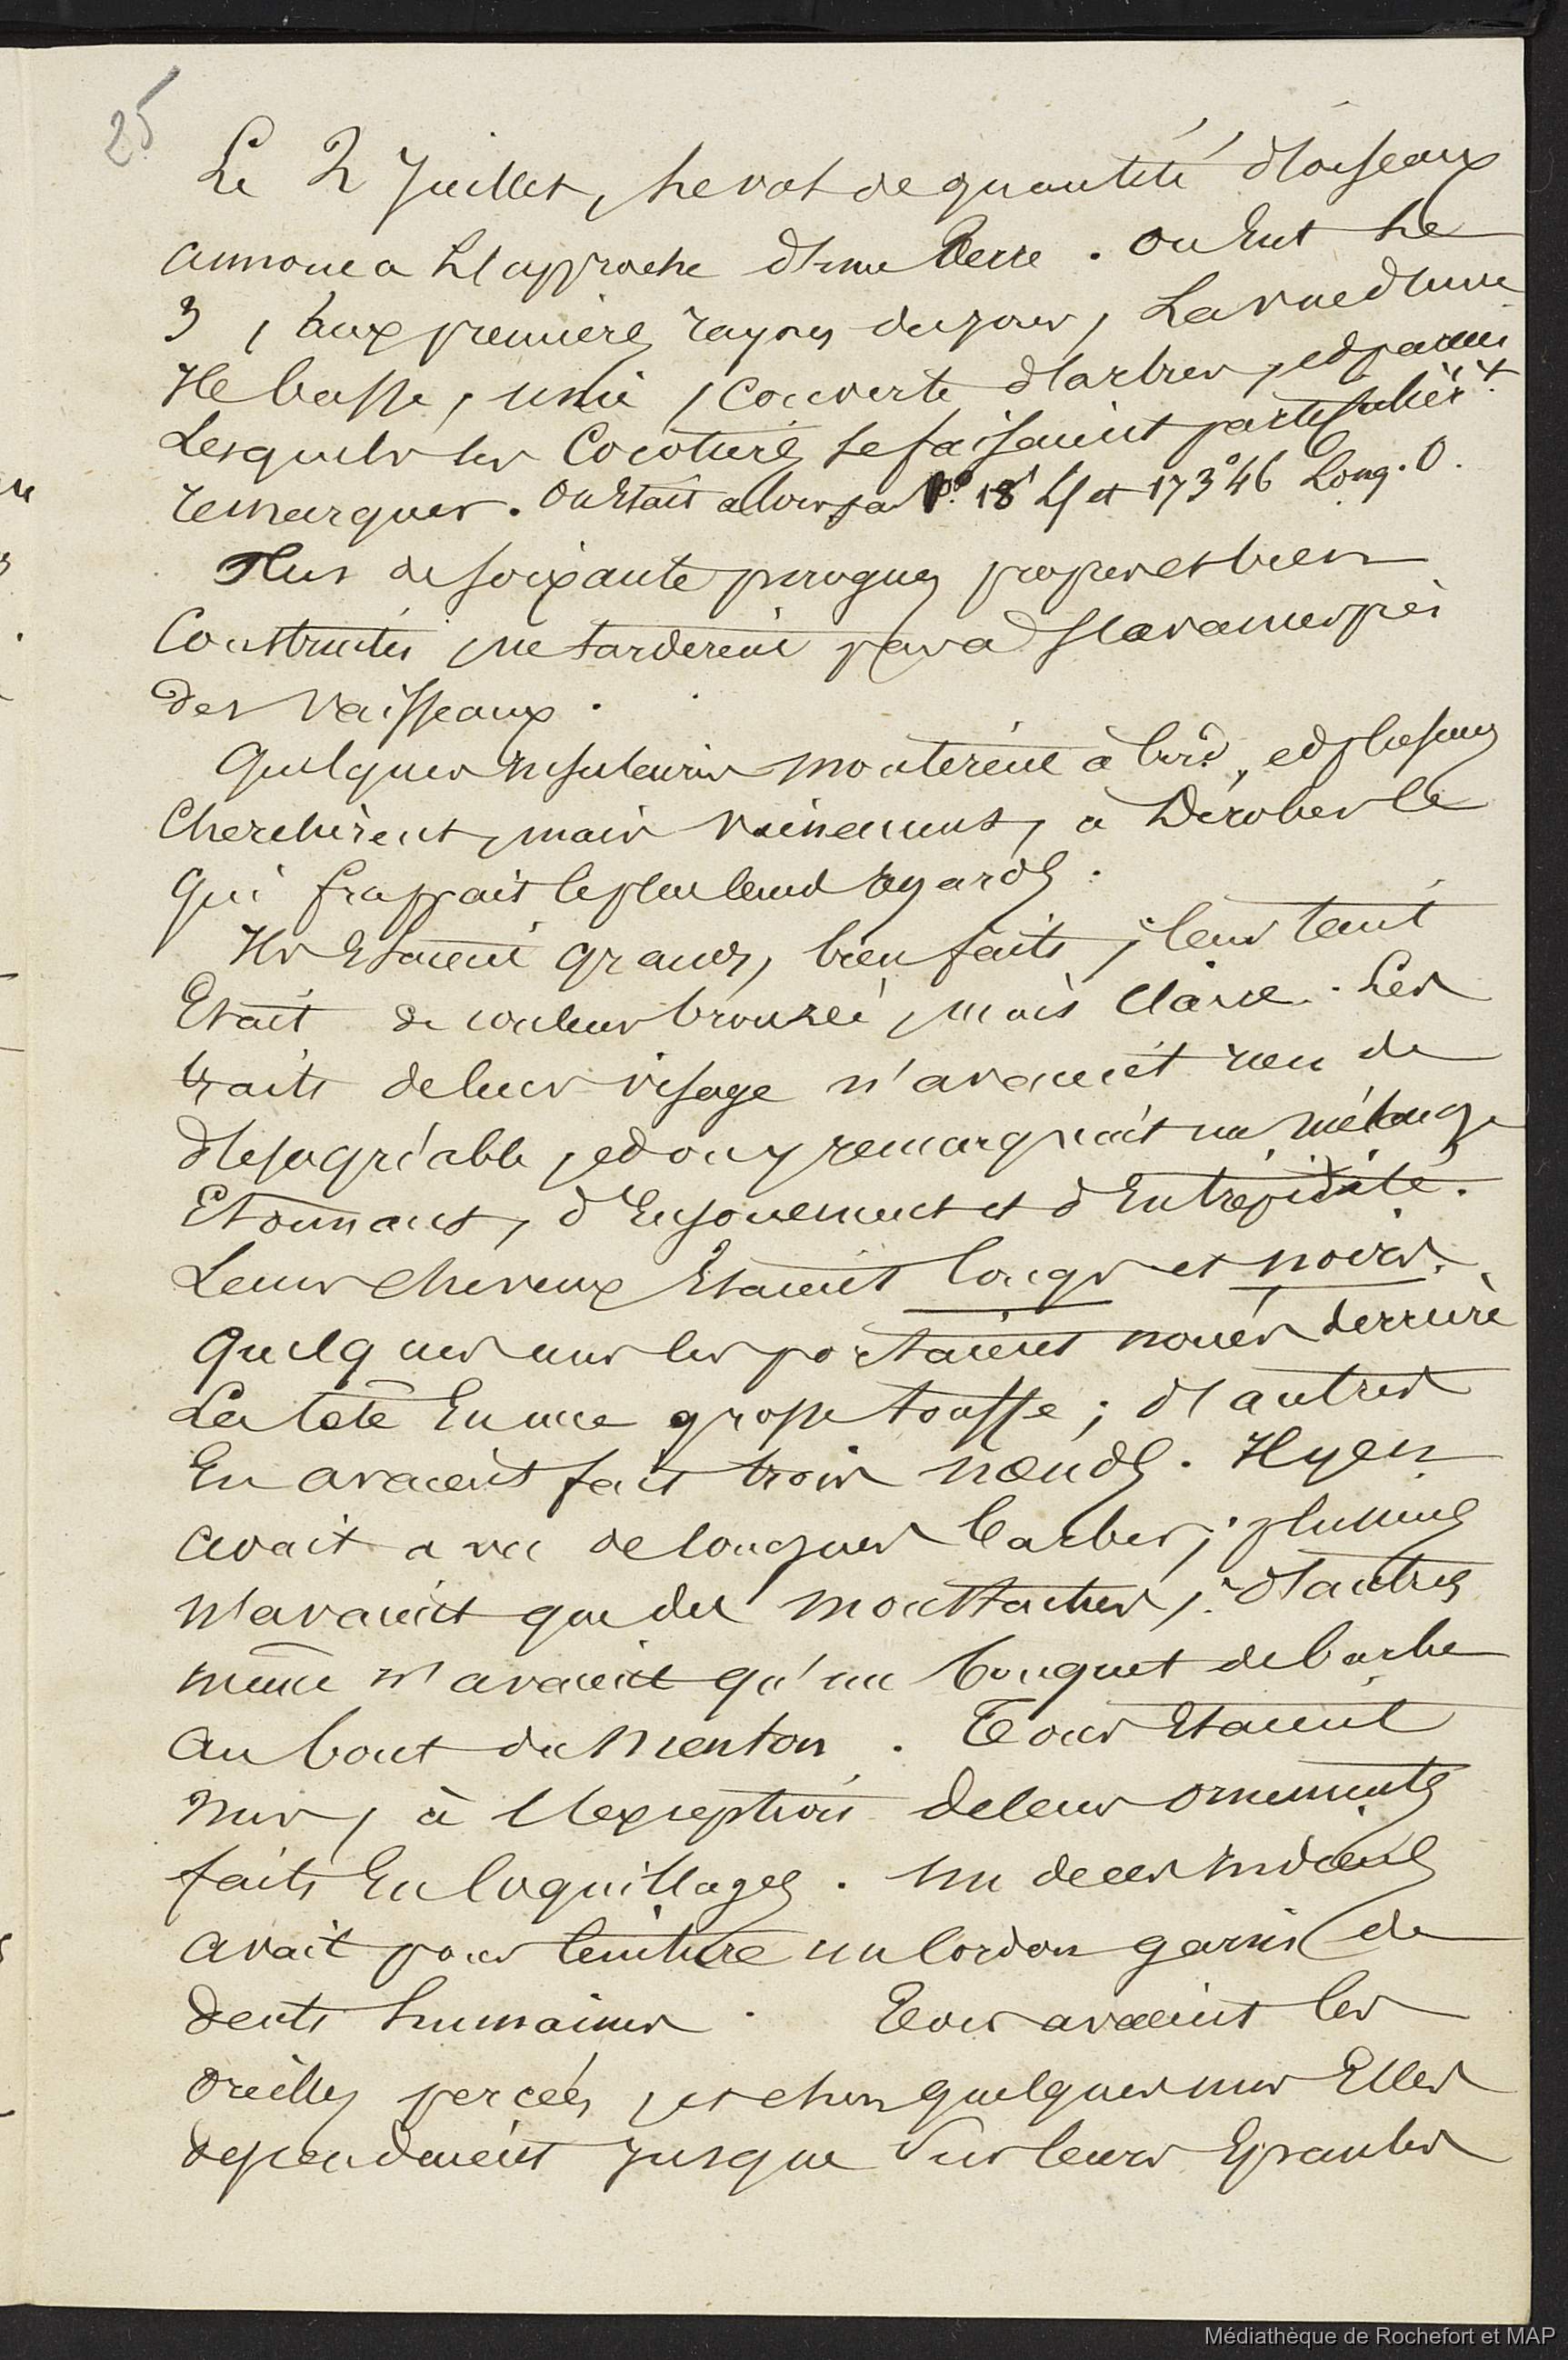 25
Le 2 Juillet, le vol de quantité d'oiseaux
annonca l'approche d'une terre. on Eut le
3, aux premiers rayons du jour, La vue d'une
Ile basse, unie, couverte d'arbres, et parmi
Lesquels les Cocotiers se faisaient particulièrt.
remarquer. on Etait alors par 18' Lf et 173°46 Long. O.
Plus de soixante pirogues propres et bien
Construites, ne tardèrent pas a s'avancer près
des vaisseaux.
Quelques insulaires montèrent à bord, et plusieurs
Cherchèrent, mais vainement, a Dérober ce
qui frappait le plus leurs regards.
Ils Etaient grands, bien faits; leur teint
Etait de couleur bronzée, mais claire. Les
traits de leur visage n'avaient rien de
désagréable, et on y remarquait un mélange
Etonnant, d'Enjouement et d'Entrépidité.
Leurs cheveux Etaient longs et noirs.
Quelques uns les portaient noués derrière
La tête En une grosse touffe; d'autres
En avaient fait trois nœuds. Il y en
avait a vec de longues barbes; plusieurs
n'avaient que des moustaches; d'autres
même n'avaient qu'un bouquet de barbe
au bout du menton. Tous Etaient
nus, à l'exception de leurs ornements
faits En coquillages. un de ces indiens
avait pour ceinture un cordon garni de
dents humaines. Tous avaient les
oreilles percées, et chez quelques uns Elles
dependaient jusque sur leurs Epaules
Médiathèque de Rochefort et MAP